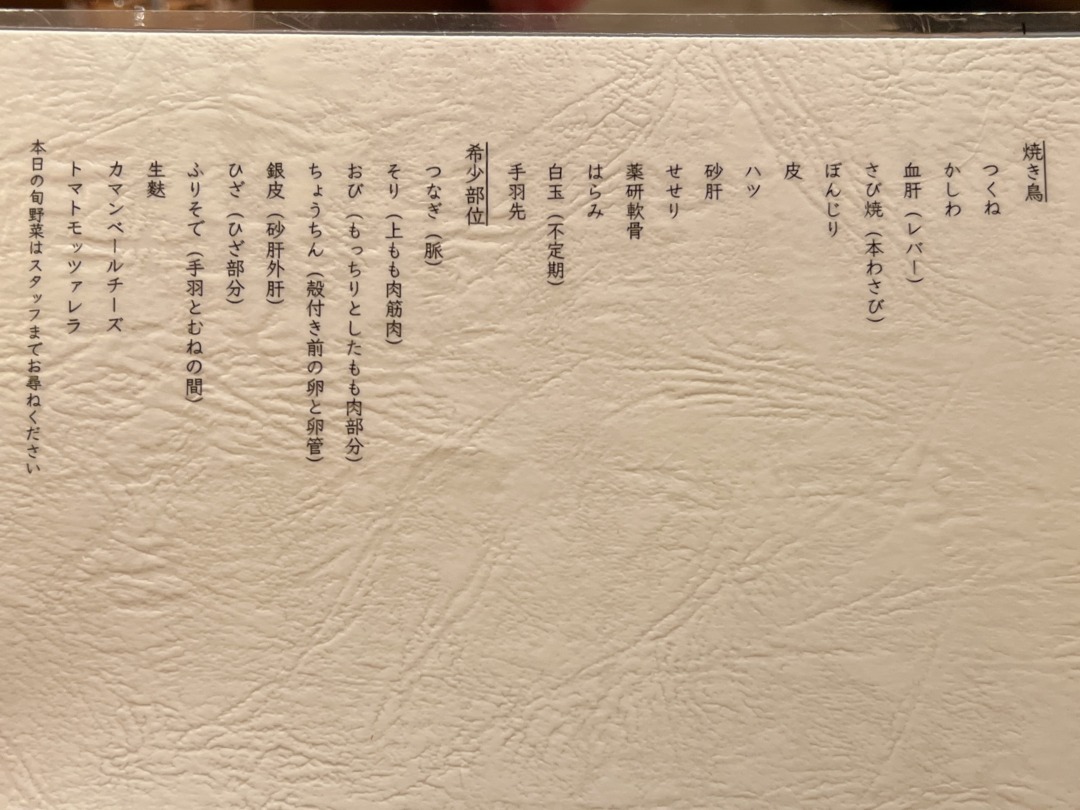 焼き鳥
つくね
かしわ
血肝（レバー）
さび焼（本わさび）
ぼんじり
皮
ハツ
砂肝
せせり
薬研軟骨
はらみ
白玉（不定期）
手羽先
希少部位
つなぎ（脈）
そり（上もも肉筋肉）
おび（もっちりとしたもも肉部分）
ちょうちん（殻付き前の卵と卵管）
銀皮（砂肝外肝）
ひざ（ひざ部分）
ふりそで（手羽とむねの間）
生麩
カマンベールチーズ
トマトモッツァレラ
本日の旬野菜はスタッフまでお尋ねください